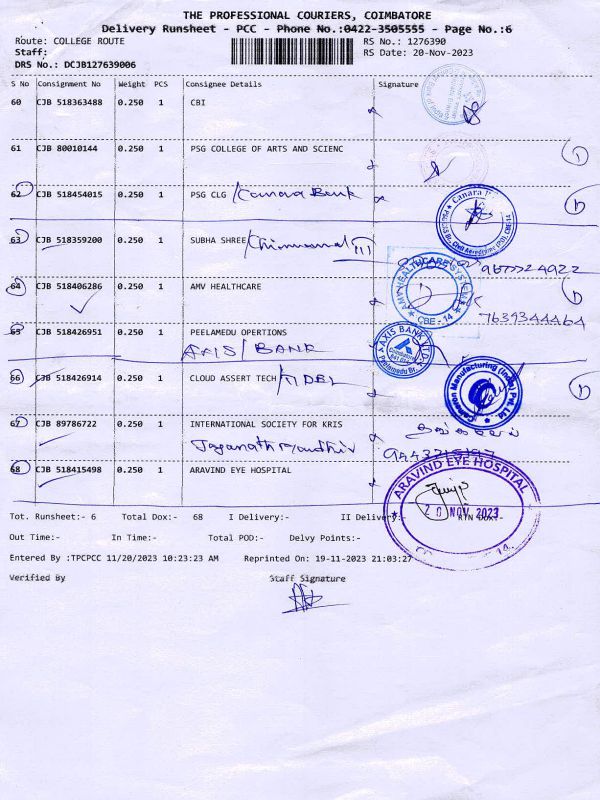 THE PROFESSIONAL COURIERS, COIMBATORE
Delivery Runsheet - PCC - Phone No.:0422-3505555 - Page No.:6
Route: COLLEGE ROUTE RS No.: 1276390
Staff: RS Date: 20-Nov-2023
DRS No.: DCJB127639006
S No Consignment No Weight PCS Consignee Details Signature
60 CJB 518363488 0.250 1 CBI
61 CJB 80010144 0.250 1 PSG COLLEGE OF ARTS AND SCIENC
62 CJB 518454015 0.250 1 PSG CLG /Canara Bank
Canara
63 CJB 518359200 0.250 1 SUBHA SHREE
64 CJB 518406286 0.250 1 AMV HEALTHCARE
AMV HEALTHCARE SYSTEMS
CBE - 14
7639344464
65 CJB 518426951 0.250 1 PEELAMEDU OPERTIONS
AXIS/BANK
AXIS BANK LTD
Coimbatore
Peelamedu Br.
66 CJB 518426914 0.250 1 CLOUD ASSERT TECH/TIDEL
Cameron Manufacturing (India) Pvt. Ltd
67 CJB 89786722 0.250 1 INTERNATIONAL SOCIETY FOR KRIS
68 CJB 518415498 0.250 1 ARAVIND EYE HOSPITAL
ARAVIND EYE HOSPITAL
20 NOV 2023
Tot. Runsheet:- 6 Total Dox:- 68 I Delivery:- II Delivery:- RTN DOX:-
Out Time:- In Time:- Total POD:- Delvy Points:-
Entered By :TPCPCC 11/20/2023 10:23:23 AM Reprinted On: 19-11-2023 21:03:27
Verified By Staff Signature